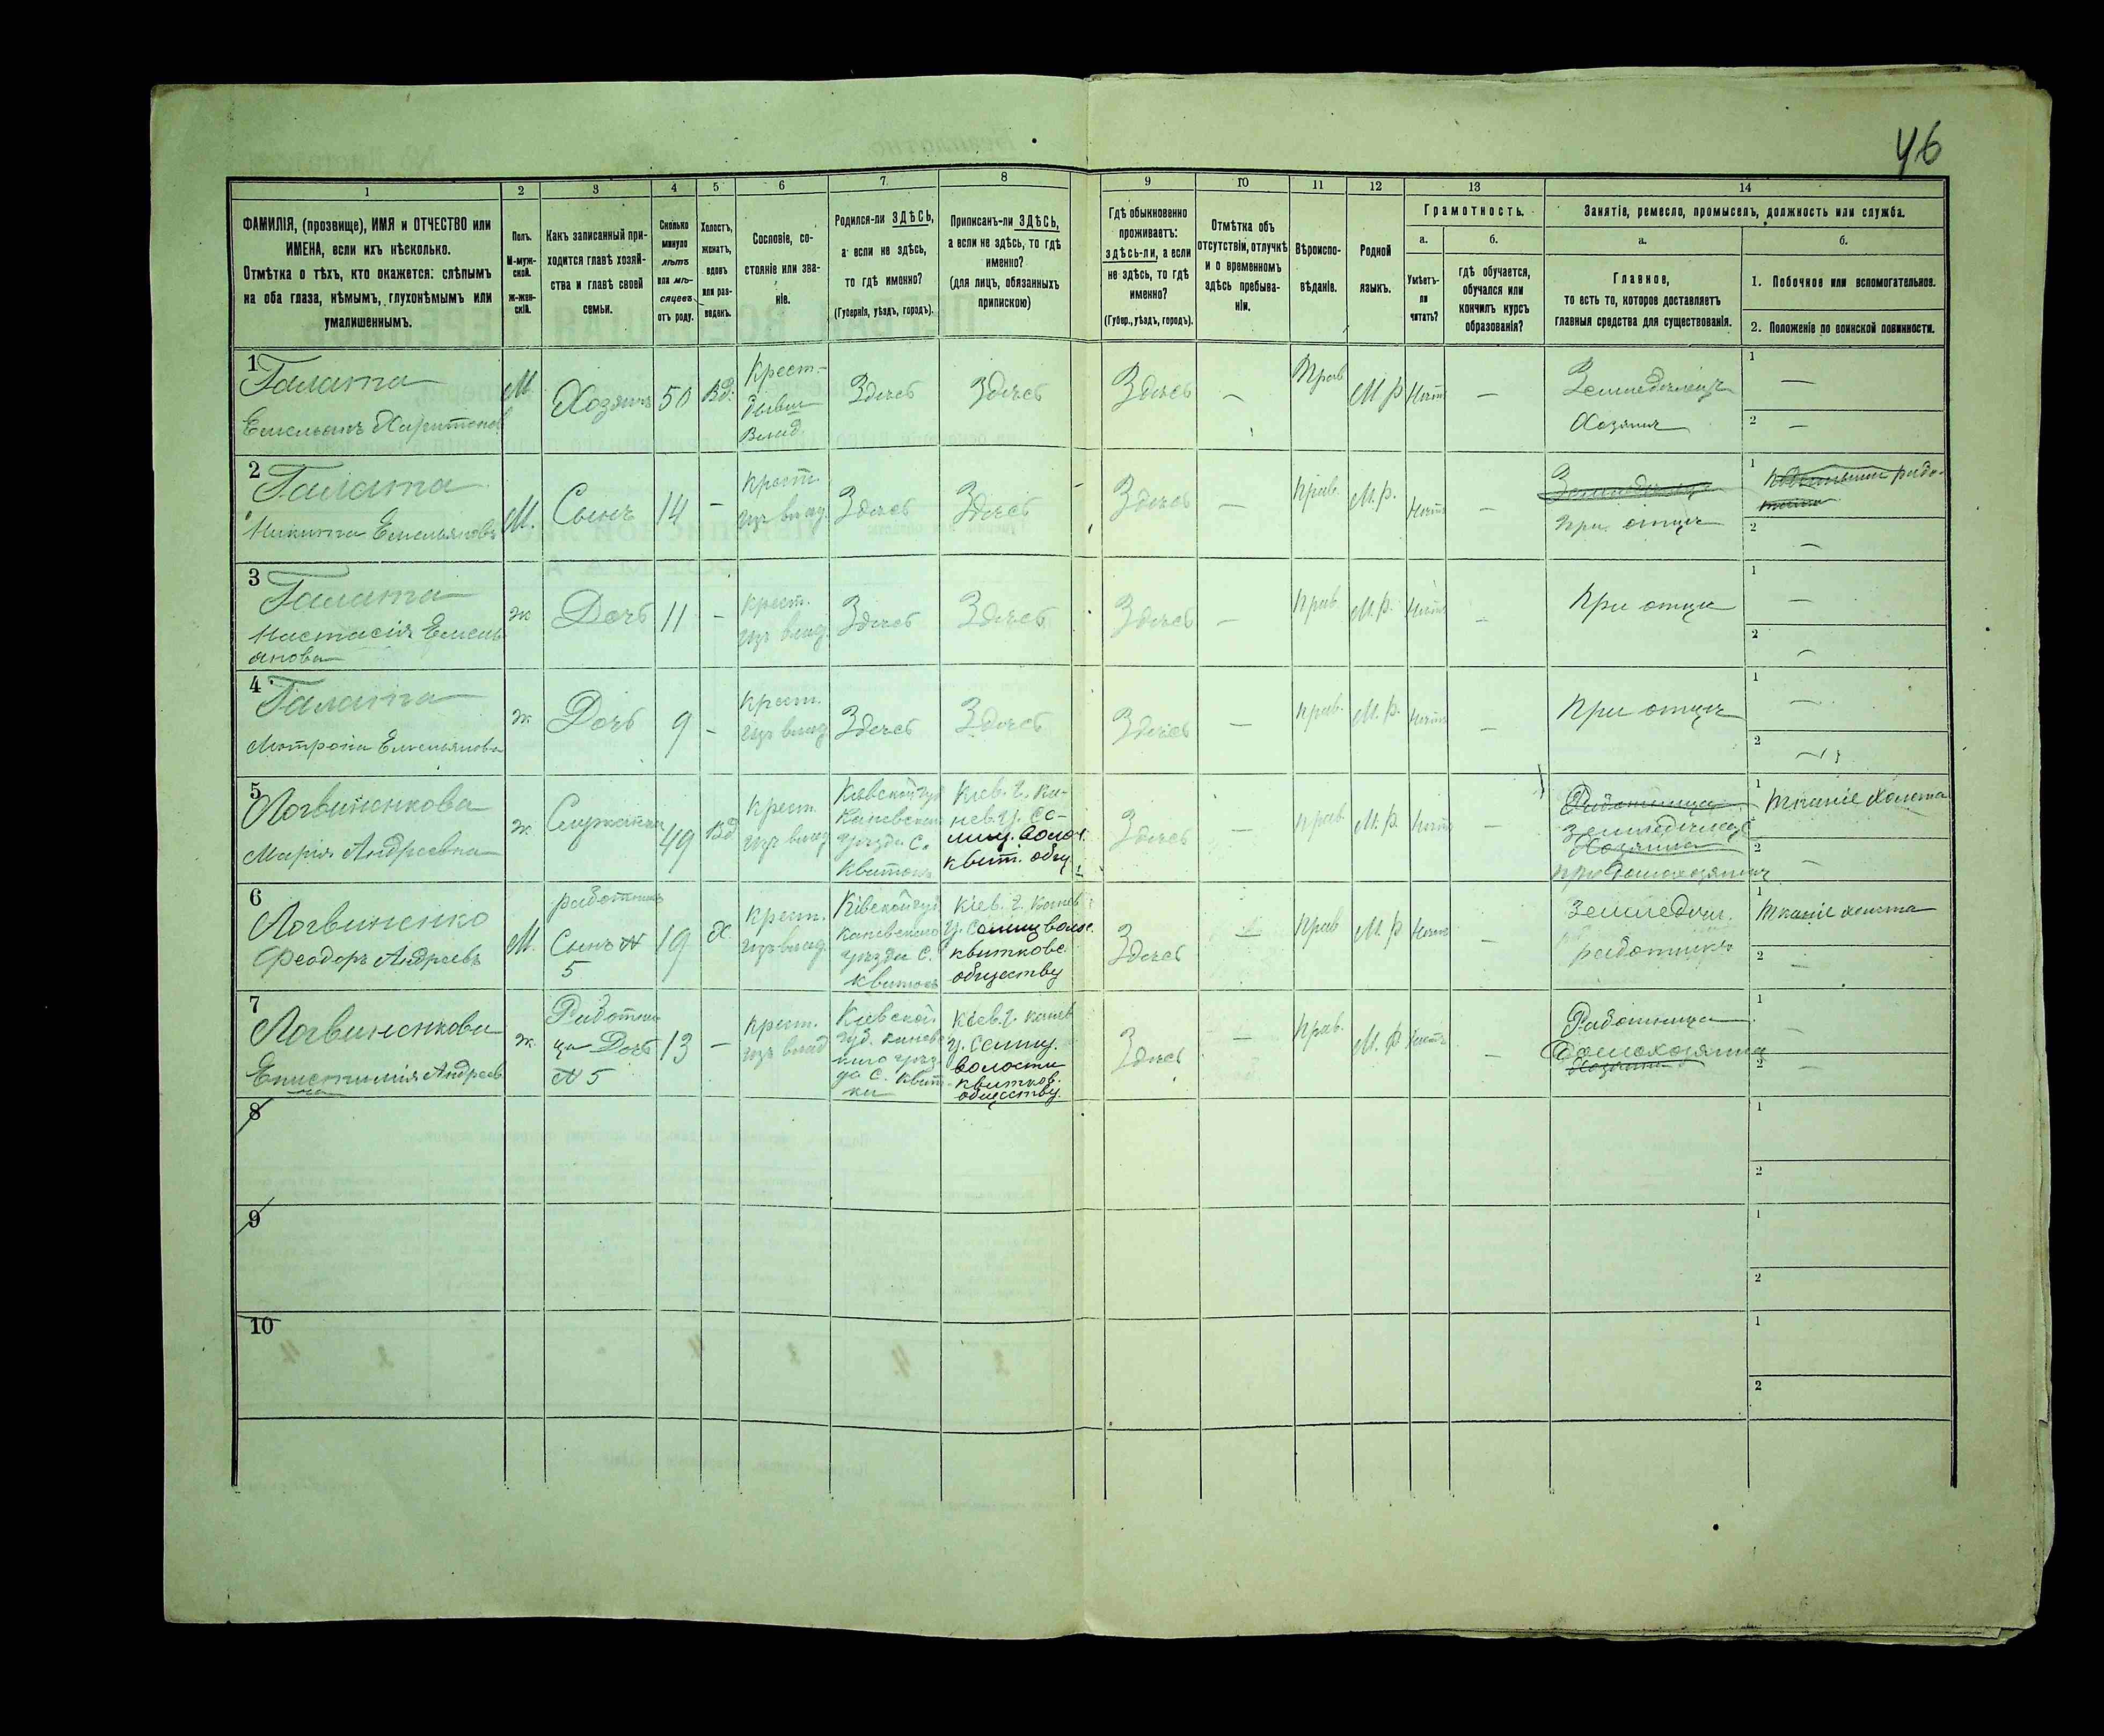 46
1 2 3 4 5 6 7 8 9 10 11 12 13 14
ФАМИЛІЯ, (прозвище), ИМЯ и ОТЧЕСТВО или
ИМЕНА, если ихъ нѣсколько.
Отмѣтка о тѣхъ, кто окажется: слѣпымъ
на оба глаза, нѣмымъ, глухонѣмымъ или
умалишеннымъ.
Полъ.
М-муж-
ской.
Ж-жен-
скій.
Какъ записанный при-
ходится главѣ хозяй-
ства и главѣ своей
семьи.
Сколько
минуло
лѣтъ
или мѣ-
сяцевъ
отъ роду.
Холостъ,
женатъ,
вдовъ
или раз-
веденъ.
Сословіе, со-
стояніе или зва-
ніе.
Родился-ли ЗДѢСЬ,
а если не здѣсь,
то гдѣ именно?
(Губернія, уѣздъ, городъ).
Приписанъ-ли ЗДѢСЬ,
а если не здѣсь, то гдѣ
именно?
(для лицъ, обязанныхъ
припискою)
Гдѣ обыкновенно
проживаетъ:
здѣсь-ли, а если
не здѣсь, то гдѣ
именно?
(Губер., уѣздъ, городъ).
Отмѣтка объ
отсутствіи, отлучкѣ
и о временномъ
здѣсь пребыва-
ніи.
Вѣроиспо-
вѣданіе.
Родной
языкъ.
Грамотность.
а.
Умѣетъ-
ли
читать?
б.
гдѣ обучается,
обучался или
кончилъ курсъ
образованія?
Занятіе, ремесло, промыселъ, должность или служба.
а.
Главное,
то есть то, которое доставляетъ
главныя средства для существованія.
б.
1. Побочное или вспомогательное.
2. Положеніе по воинской повинности.
1
Галата
Емельянъ Харитонов
М
Хозяинъ
50
Вд.
Крест-
бывш
Влад.
Здѣсь
Здѣсь
Здѣсь
—
Прав
М р
Нѣтъ
—
Земледѣлецъ
Хозяинъ
1
—
2
—
2
Галата
Никита Емельяновъ
М.
Сынъ
14
—
Крест.
изъ влад.
Здѣсь
Здѣсь
Здѣсь
—
Прав.
М.р.
Нѣтъ
—
Земледѣлецъ
При отцѣ
1
2
—
3
Галата
Настасія Емель
янова
ж
Дочь
11
—
Крест.
изъ влад.
Здѣсь
Здѣсь
Здѣсь
—
Прав.
М.р.
Нѣтъ
—
При отцѣ
1
—
2
—
4
Галата
Мотрона Емельянова
ж
Дочь
9
—
Крест.
изъ влад
Здѣсь
Здѣсь
Здѣсь
—
Прав.
М.р.
Нѣтъ
—
При отцѣ
1
—
2
—
5
Логвиненкова
Марія Андреевна
ж
Служанка
49
Вд
Крест
изъ влад
Кіевской губ
Каневскаго
уѣзда с.
Квитокъ
Кіев. г. Ка-
нев. у. Се-
лищ. волос.
квит. общ
Здѣсь
—
Прав.
М.р.
Нѣтъ
—
Работница
Хозяина
при домохозяинѣ
1
Тканіе холста
2
—
6
Логвиненко
Феодоръ Андреевъ
М.
работникъ
Сынъ N
5
19
Х.
Крест.
изъ влад.
Кіевской губ
Каневскаго
уѣзда с.
Квитокъ
Кіев. г. Канев
у. Селищ волос.
квитков.
обществу
Здѣсь
—
Прав
М р
Нѣтъ
—
Земледѣл.
работникъ
1
Тканіе холста
2
—
7
Логвиненкова
Епистимія Андреев
на
ж.
Работни
ца Дочь
N 5
13
—
Крест.
изъ влад
Кіевской
губ. Канев
каго уѣз
да с. Квит
ки
Кіев. г. Канев
у. Селищ.
волости
квитков.
обществу.
Здѣсь
—
Прав.
М.р
Нѣтъ
—
Работница
Домохозяина
Хозяина
1
—
2
—
8
1
2
9
1
2
10
1
2